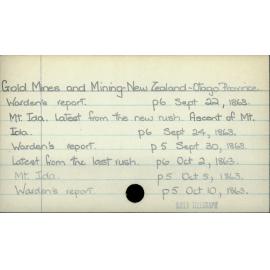 Gold Mines and Mining-New Zealand-Otago Province
Warden's report. p6 Sept 22, 1863.
Mt. Ida. Latest from the new rush. Ascent of Mt.
Ida. p6 Sept 24, 1863.
Warden's report. p5 Sept 30, 1863.
Latest from the last rush. p6 Oct 2, 1863.
Mt. Ida. p5 Oct 5, 1863.
Warden's report. p5 Oct 10, 1863.